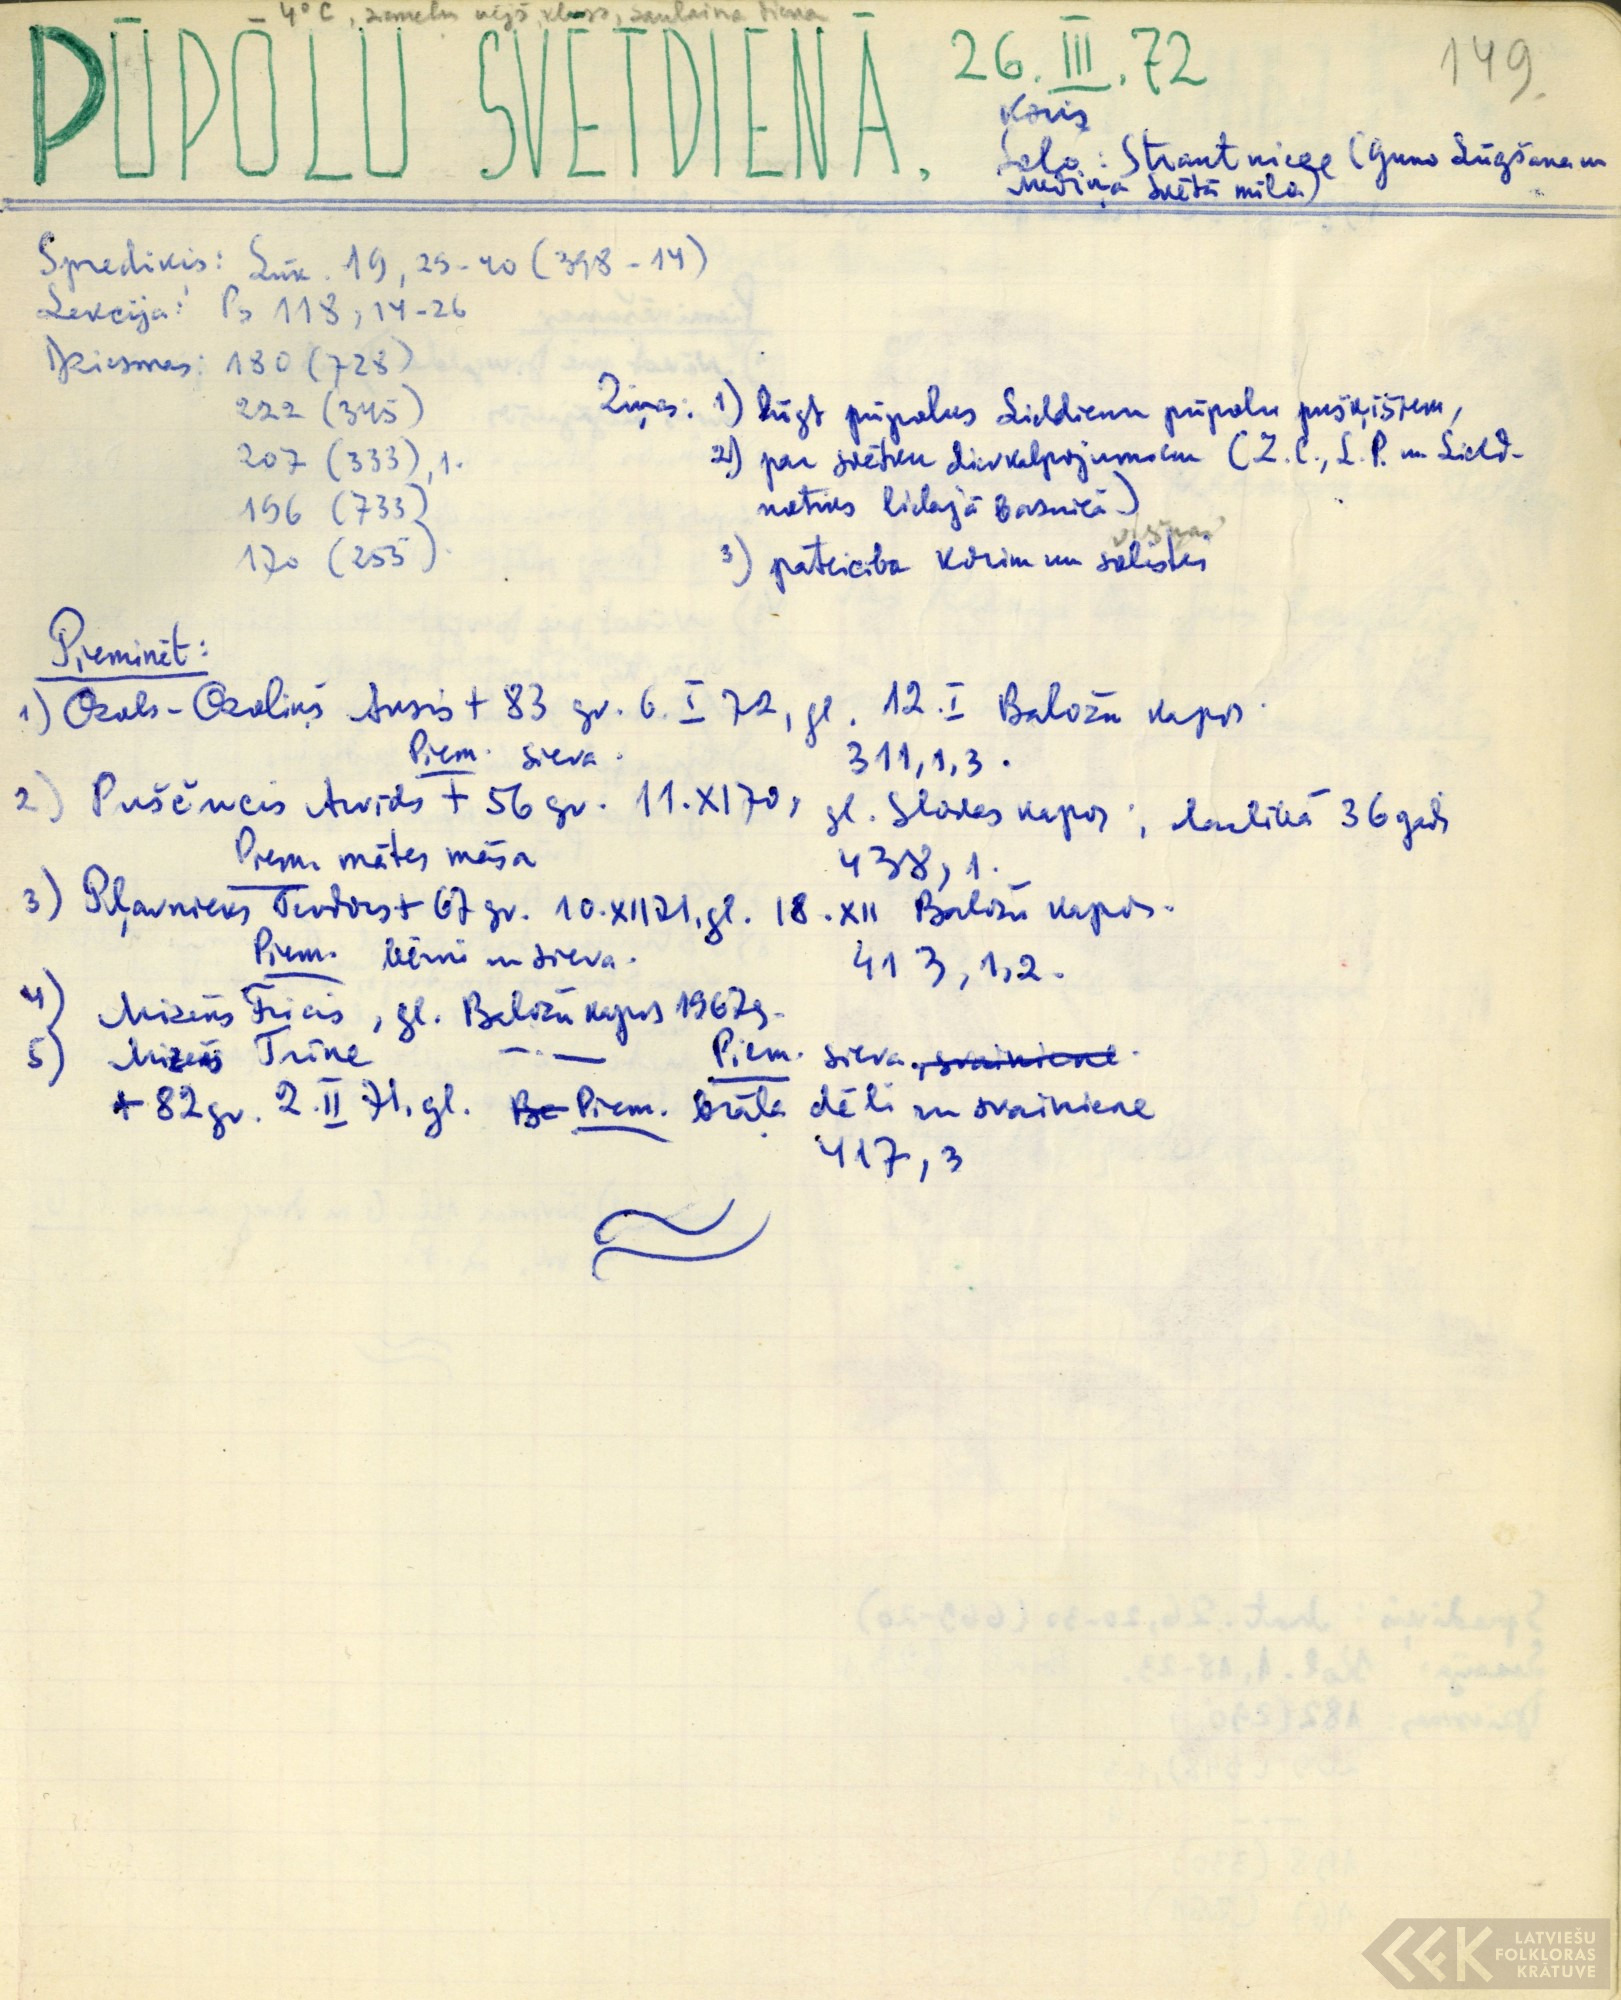 4°C, ziemeļu vējš, kluss, saulaina diena
PŪPOLU SVĒTDIENĀ. 26.III.72
149.
Koris
Solo: Strautniece (Guno Lūgšana un
Mediņa Svētā mīla)
Sprediķis: Lūk. 19, 29-40 (398-14)
Lekcija: Ps 118, 14-26
Dziesmas: 180 (728)
222 (345)
207 (333), 1.
196 (733)
170 (255)
Ziņas: 1) lūgt pūpolus Lieldienu pūpolu pušķīšiem,
2) par svētku dievkalpojumiem (Z.C., L.P. un Lield.
notiks lielajā baznīcā)
3) pateicība korim un solistei
Pieminēt:
1) Ozols-Ozoliņš Ansis + 83 gv. 6. I 72, gl. 12.I Baložu kapos.
Piem. sieva. 311,1,3.
2) Puščucis Arvīds + 56 gv. 11.XI 70, gl. Slokas kapos; laulībā 36 gadi
Piem. mātes māsa 438, 1.
3) Pļavnieks Teodors + 67 gv. 10.XII 71, gl. 18.XII Baložu kapos.
Piem. bērni un sieva. 413, 1,2.
4) Mizēns Fricis, gl. Baložu kapos 1967g.
5) Mizēns Trīne —·— Piem. sieva, svainiene.
+ 82 gv. 2.II 71, gl. Be Piem. brāļa dēli un svainiene
417, 3
LATVIEŠU
FOLKLORAS
KRĀTUVE